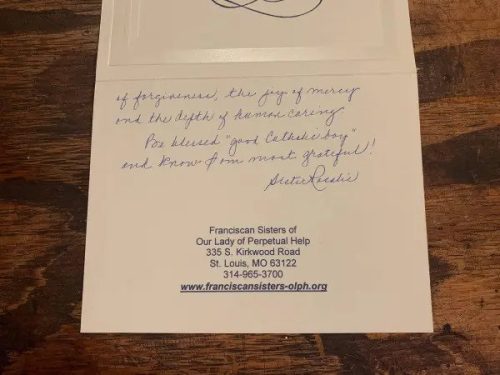 of forgiveness, the joy of mercy
and the depth of human caring
Be blessed "good Catholic boy"
and know I am most grateful!
Sister Rosalie
Franciscan Sisters of
Our Lady of Perpetual Help
335 S. Kirkwood Road
St. Louis, MO 63122
314-965-3700
www.franciscansisters-olph.org